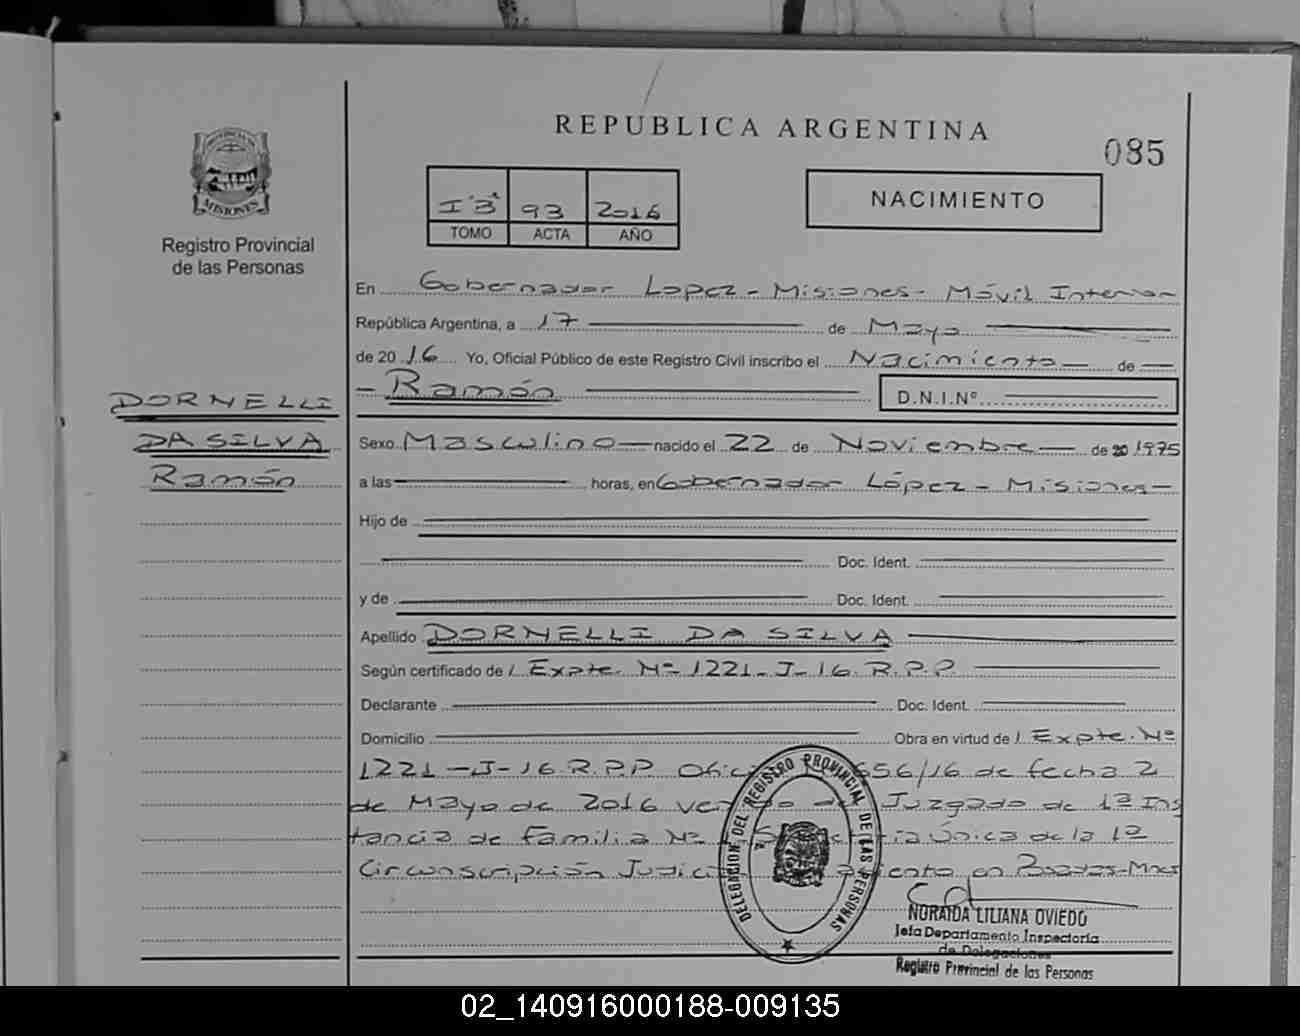 REPUBLICA ARGENTINA
085
PROVINCIA DE
MISIONES
Registro Provincial
de las Personas
I"B" 93 2016
TOMO ACTA AÑO
NACIMIENTO
En Gobernador Lopez - Misiones - Móvil Interior
República Argentina, a 17 de Mayo
de 2016 Yo, Oficial Público de este Registro Civil inscribo el Nacimiento de
- Ramón D.N.I.Nº
DORNELLI
DA SILVA
Ramón
Sexo Masculino nacido el 22 de Noviembre de 20 1975
a las horas, en Gobernador López - Misiones -
Hijo de
Doc. Ident.
y de Doc. Ident.
Apellido DORNELLI DA SILVA
Según certificado de / Expte. Nº 1221-J-16. R.P.P.
Declarante Doc. Ident.
Domicilio Obra en virtud de / Expte. Nº
1221-J-16. R.P.P. 656/16 de fecha 2
de Mayo de 2016 Juzgado de 1ª Ins
tancia de Familia Nº Única de la 1ª
Circunscripción en Posadas-Mnes
DELEGACION DEL REGISTRO PROVINCIAL DE LAS PERSONAS
NORAIDA LILIANA OVIEDO
Jefa Departamento Inspectoria
de Delegaciones
Registro Provincial de las Personas
02_140916000188-009135